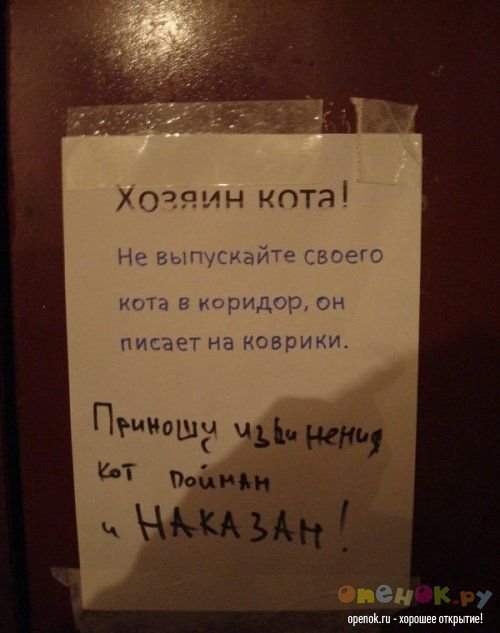 Хозяин кота!
Не выпускайте своего
кота в коридор, он
писает на коврики.
Приношу извинения
Кот пойман
и НАКАЗАН!
опенок.ру
openok.ru - хорошее открытие!